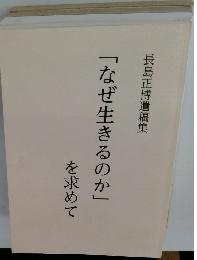 長島正博遺稿集
「なぜ生きるのか」
を求めて